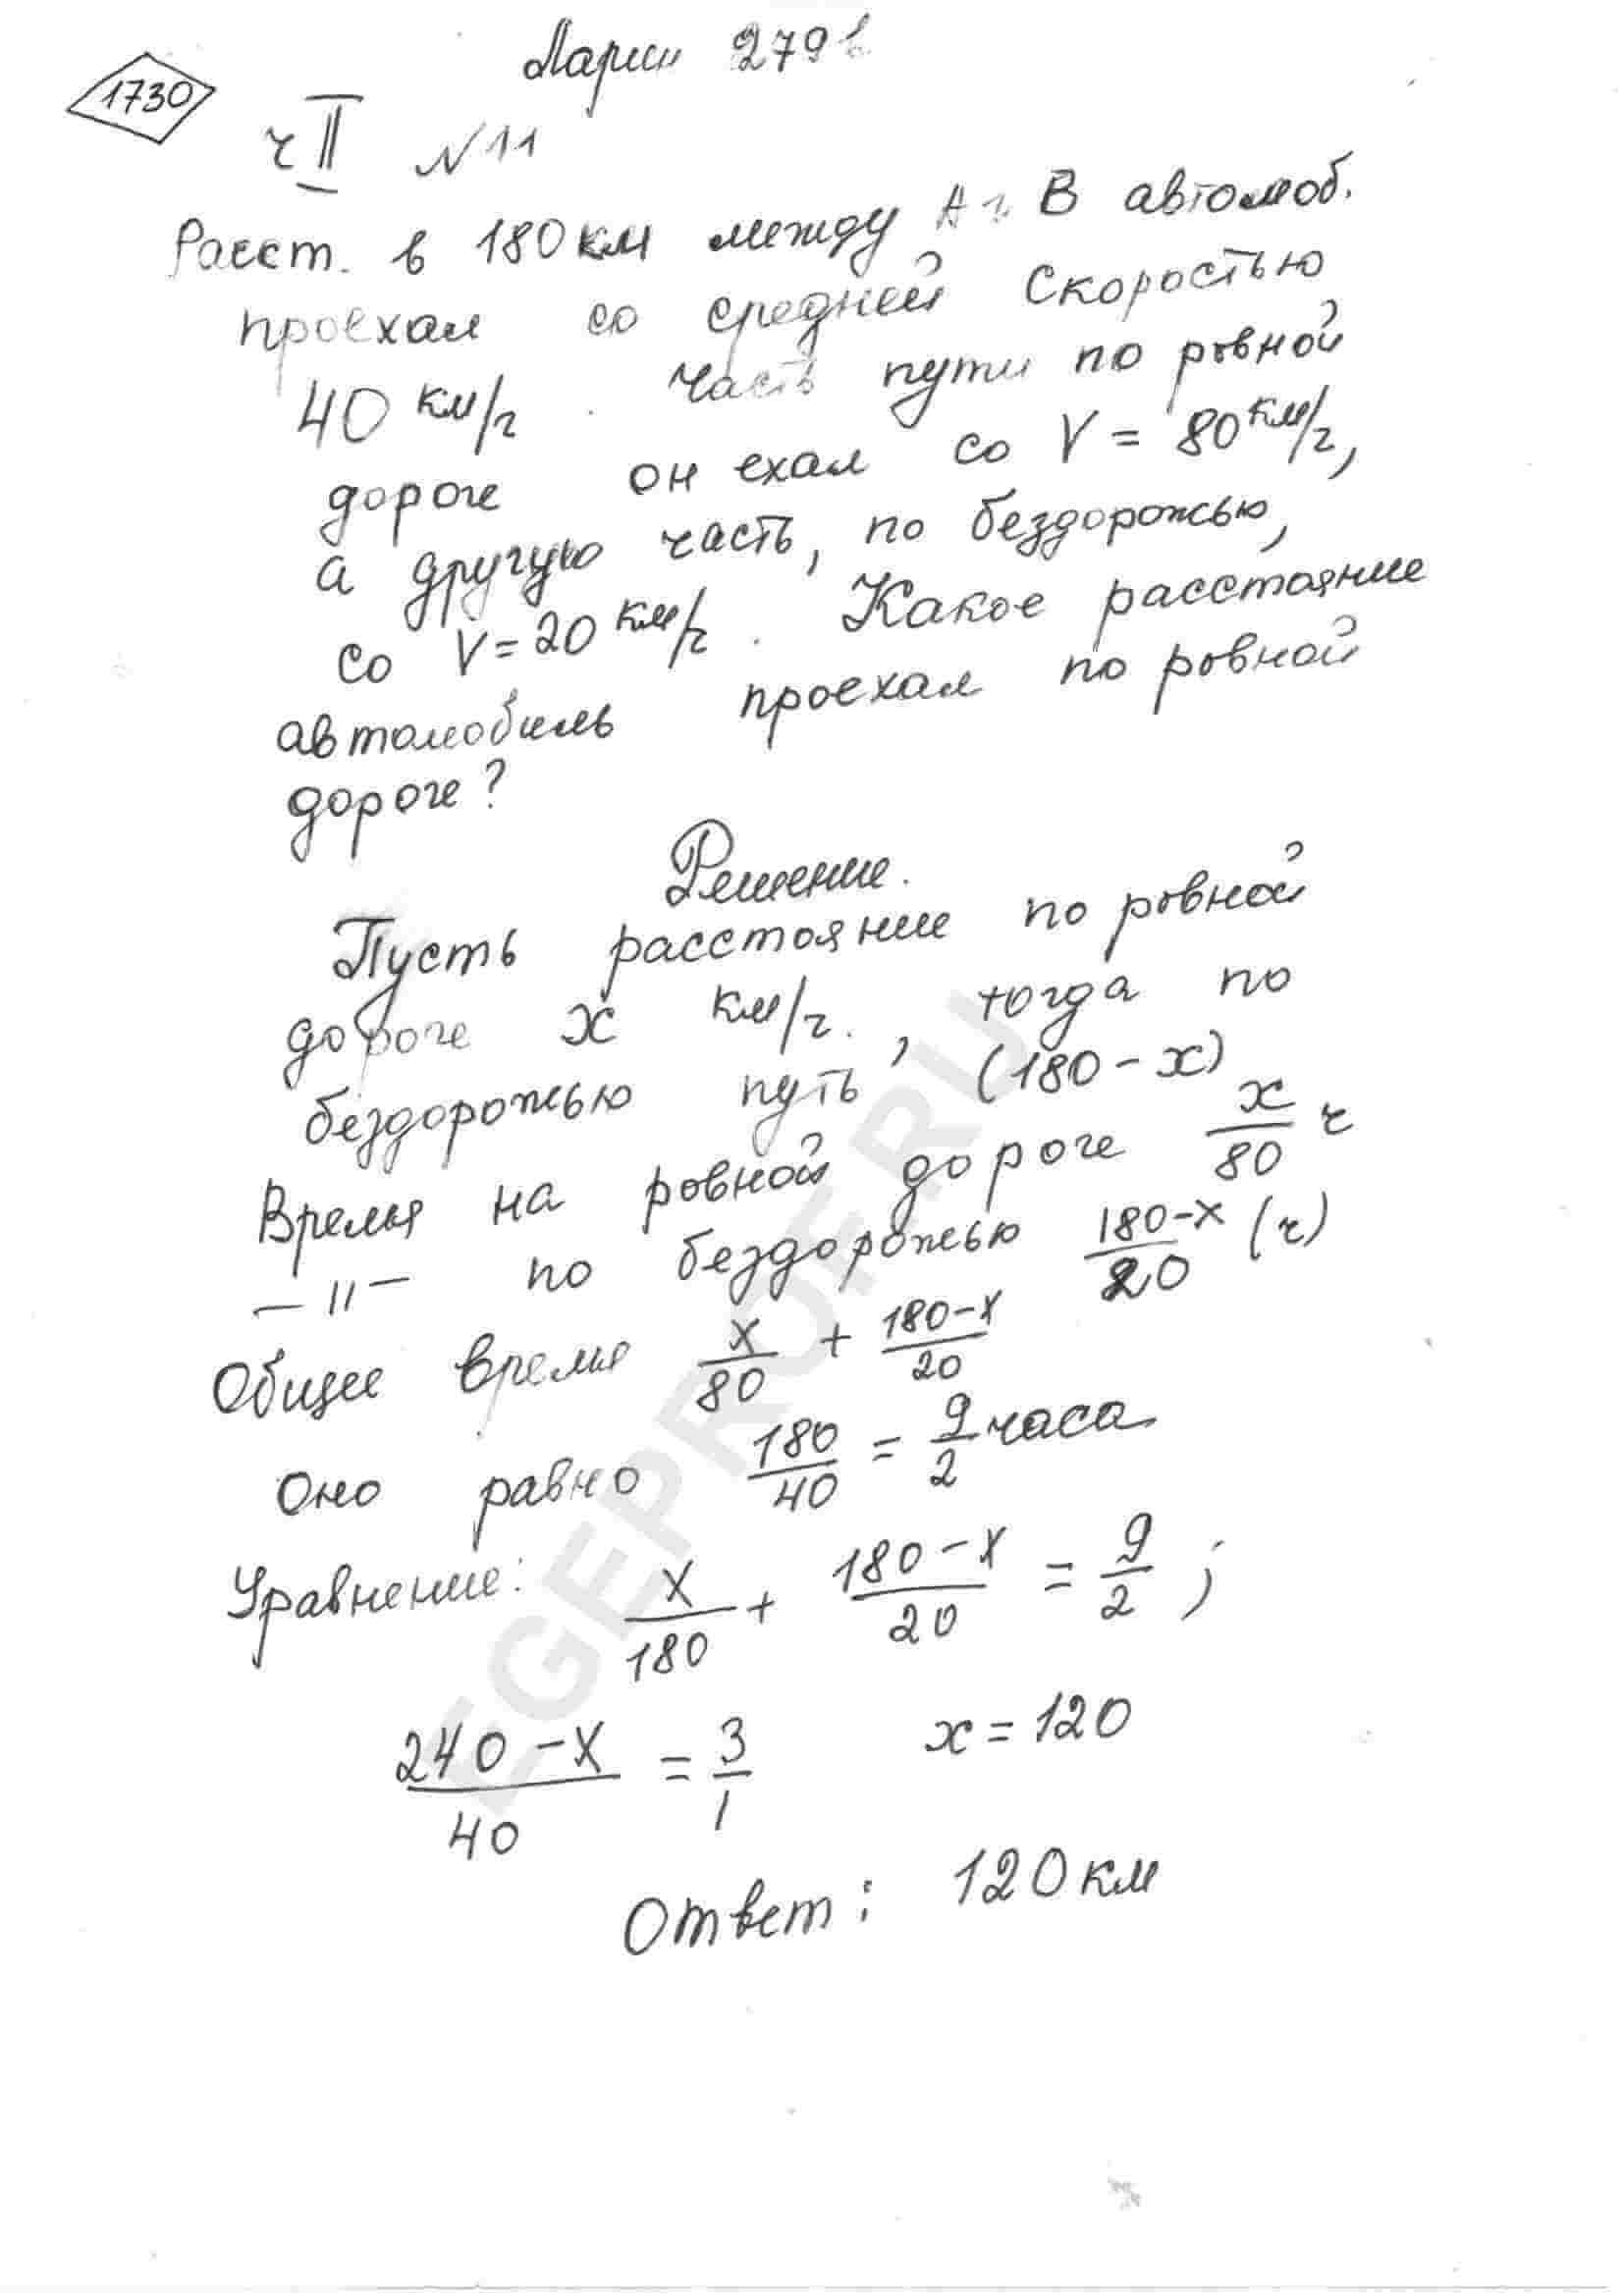 Ларин 279
1730
ч II N 11
Расст. в 180 км между А и В автомоб.
проехал со средней скоростью
40 км/ч. Часть пути по ровной
дороге он ехал со V = 80 км/ч,
а другую часть, по бездорожью,
со V = 20 км/ч. Какое расстояние
автомобиль проехал по ровной
дороге?
Решение.
Пусть расстояние по ровной
дороге x км/ч., тогда по
бездорожью путь (180 - x)
Время на ровной дороге x/80 ч
— 11 — по бездорожью 180-x/20 (ч)
Общее время x/80 + 180-x/20
Оно равно 180/40 = 9/2 часа
Уравнение: x/180 + 180-x/20 = 9/2 ;
240-x/40 = 3/1 x = 120
Ответ: 120 км
EGEPROF.RU